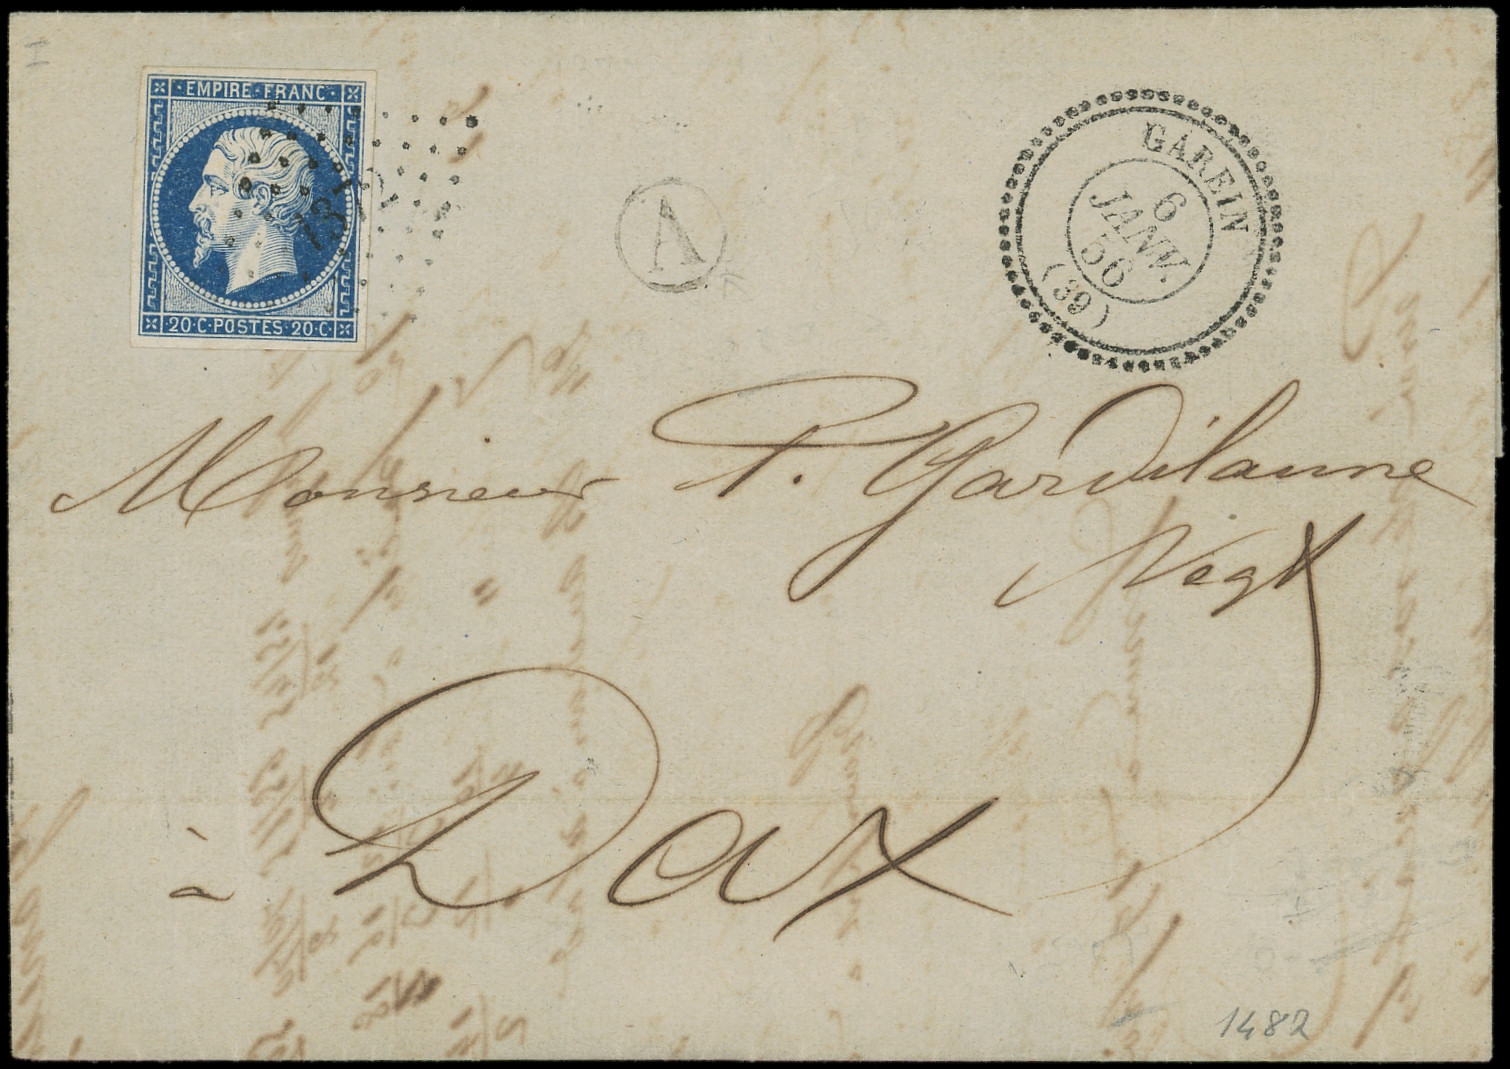 EMPIRE FRANC
20·C·POSTES 20·C·
A
GAREIN
6
JANV.
56
(39)
Monsieur P. Gardilanne
Negt
à Dax
1482